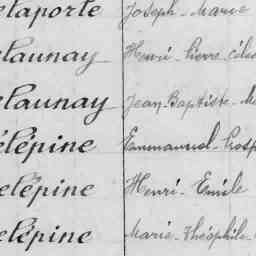 elaporte Joseph-Marie
elaunay Henri-Pierre Céles
elaunay Jean Baptiste-Ma
elépine Emmanuel-Prosp
elépine Henri-Emile
elépine Marie-Théophile-